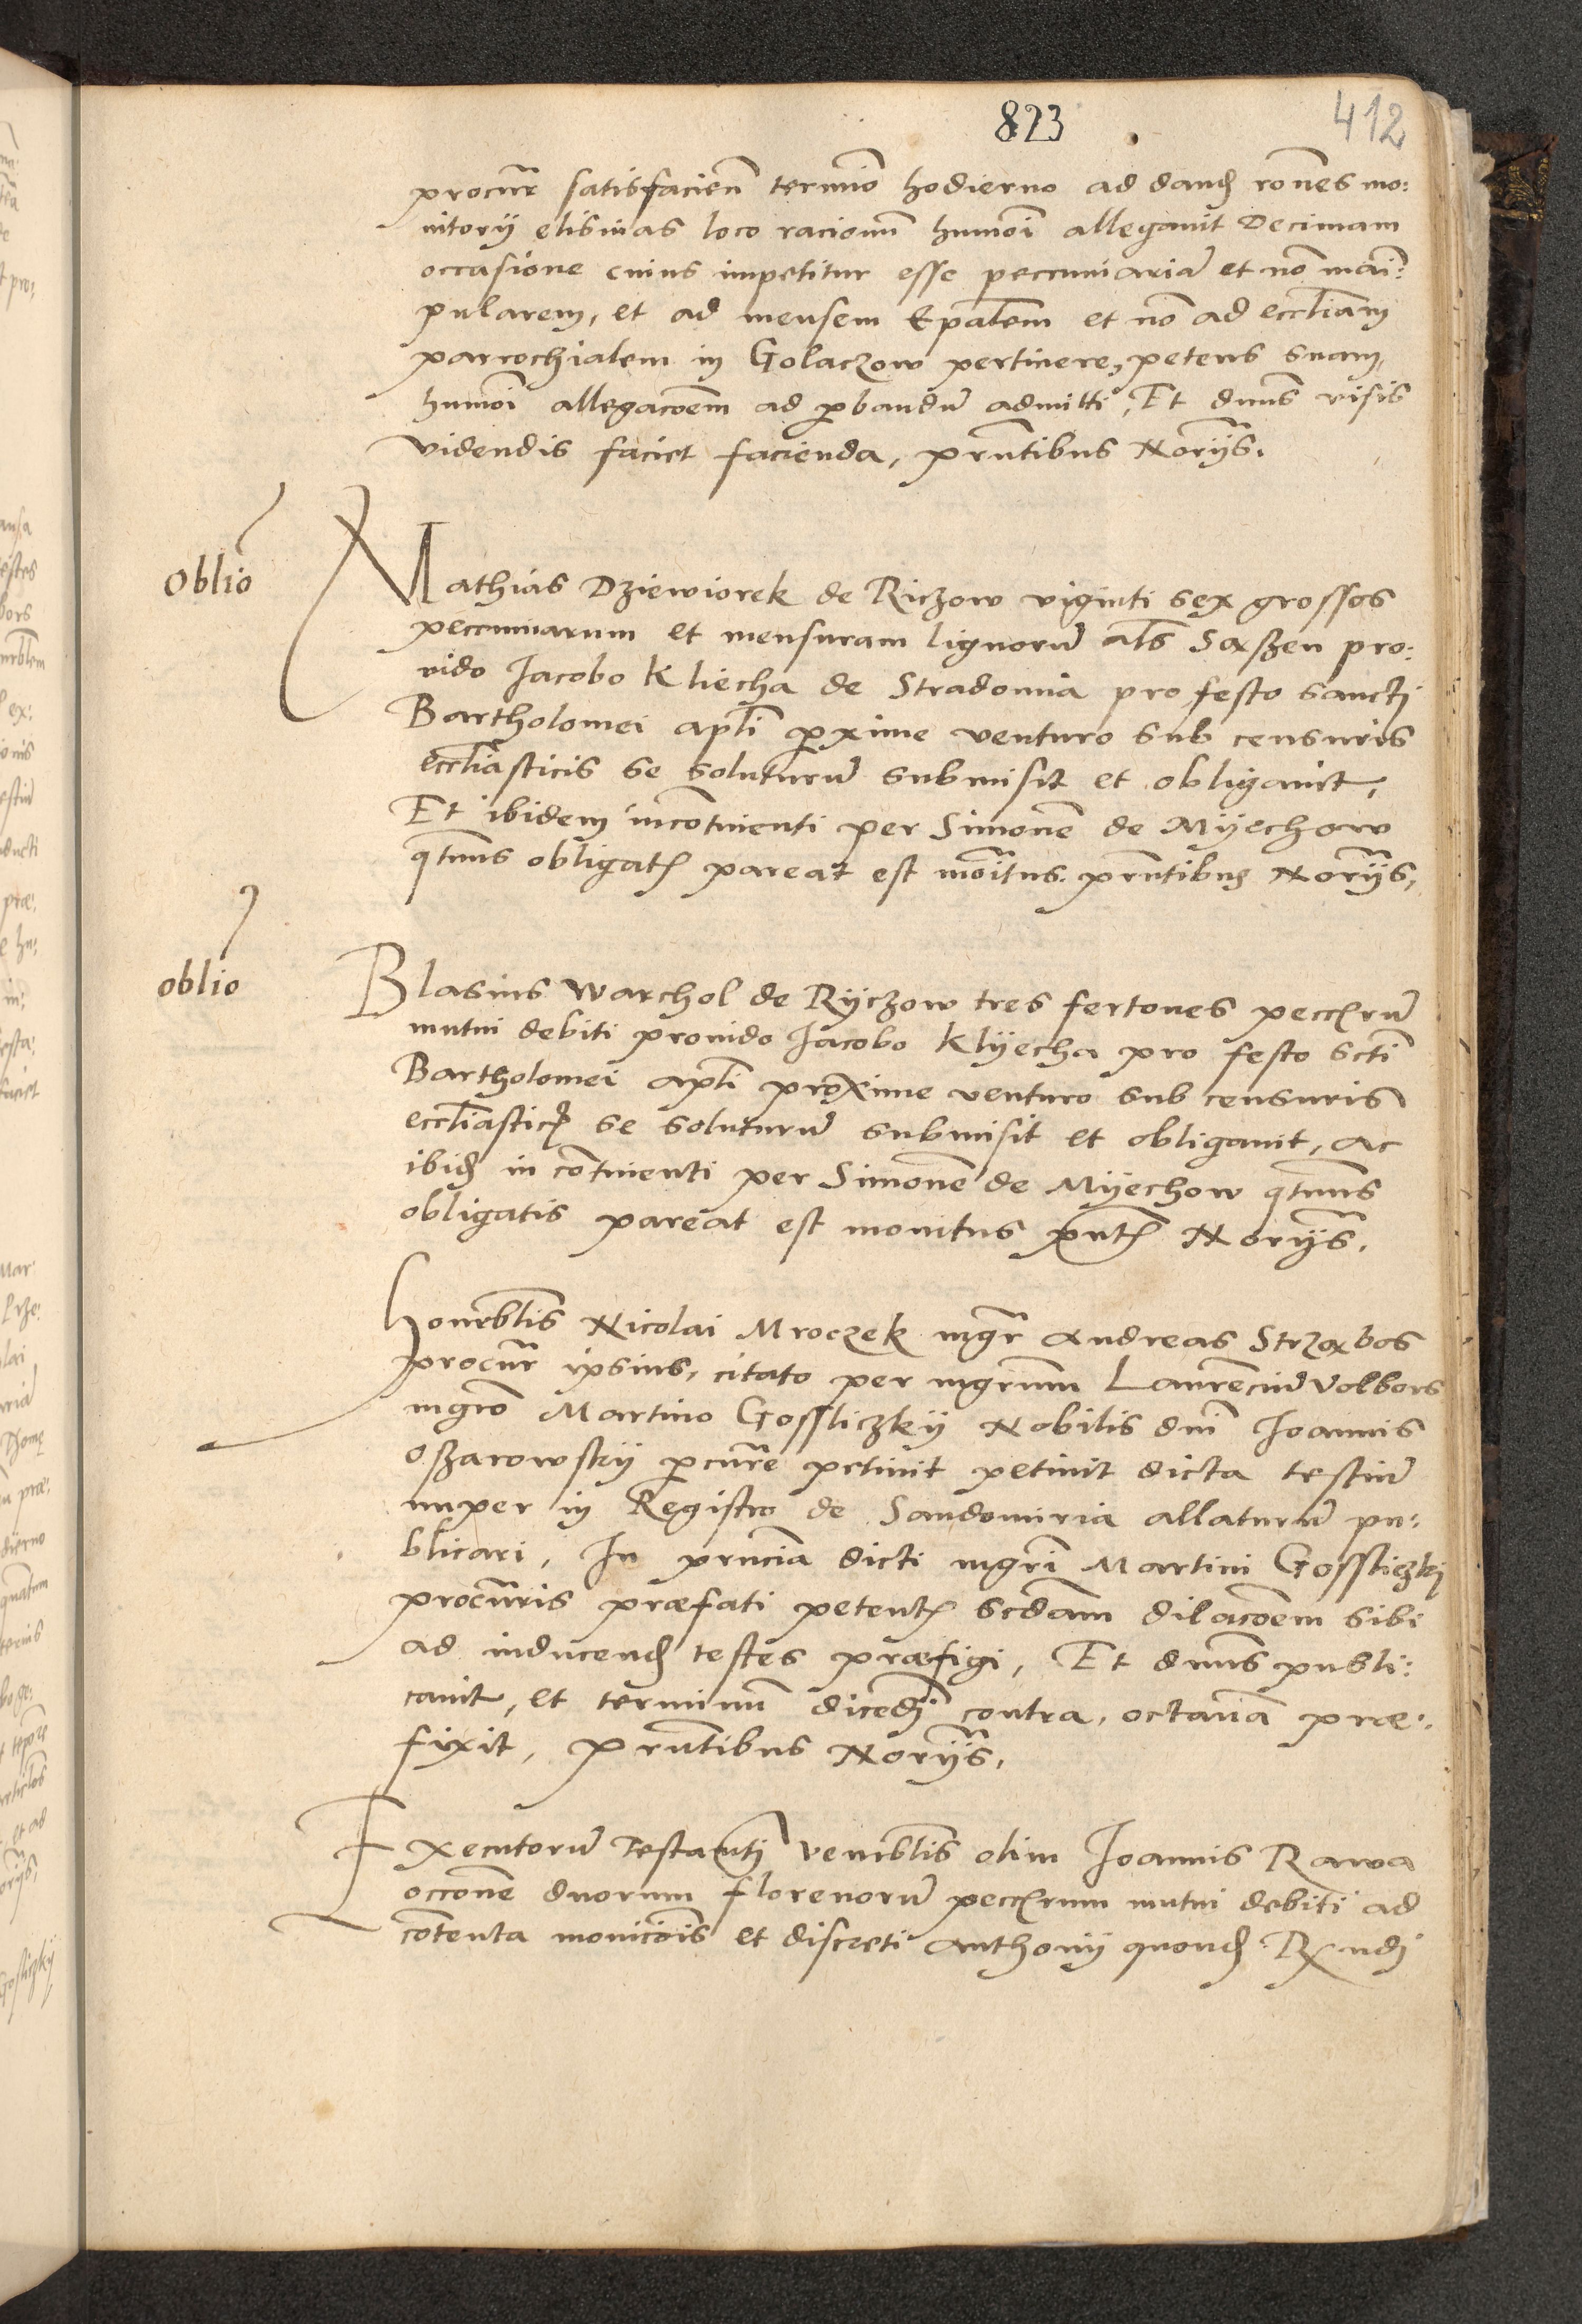 823
412
procur̃ satisfacien̄ termīo hodierno ad dand̨ rōnes mo:
nitorij elisiuas loco racionū humōi allegauit Decimam
occasione cuius impetitur esse peccuniariā et nō māi:
pularem, et ad mensem Ep̄alem et nō ad eccl̄iam
parrochialem in Golaczow pertinere, petens suam
humōi allegacōem ad ꝓbandū admitti, Et dnūs visis
videndis faciet facienda, prn̄tibus Norijs̄.
Oblīo
Mathias Dziewiorek de Riczow viginti sex grossos
peccuniarum et mensuram lignorū al̄s Sąszen pro:
uido Jacobo Kliecha de Stradomia pro festo sancti
Bartholomei apl̄i ꝓxime venturo sub censuris
eccl̄iasticis se soluturū submisit et obligauit,
Et ibidem incōtinenti per Simonē de Myechow
qtn̄us obligatꝭ pareat est mōitus. prn̄tibus Norijs̄,
oblio
Blasius Warchol de Ryczow tres fertones peccꝭrū
mutui debiti prouido Jacobo Klyecha pro festo sct̄i
Bartholomei apl̄i proxime venturo sub censuris
eccl̄iasticꝭ se soluturū submisit et obligauit, ac
ibid̨ in cōtinenti per Simonē de Myechow qtn̄us
obligatis pareat est monitus prn̄tꝭ Norijs̄.
Honorbl̄is Nicolai Mroczek mgr̄ Andreas Strząbos
procur̃ ipsius, citato per mgrūm Laurēciū Volbors
mgrō Martino Gossliczky Nobilis dn̄i Joannis
Oszarowsky ꝓcur̃e petiuit petiuit dicta testiū
nuper in Registro de Sandomiria allaturū pu:
blicari, In prn̄cia dicti mgrī Martini Gossliczkj
procur̃is præfati petentꝭ scd̄am dilacōem sibi
ad inducend̨ testes præfigi, Et dnūs publi:
cauit, et terminū dicēdj contra, octauā præ:
fixit, prn̄tibus Norijs̄.
Executorū Testamn̄ti venerbl̄is olim Joannis Rawa
occōne duorum florenorū peccꝭrum mutui debiti ad
cōtenta monicōis et discreti Anthonij quond̨